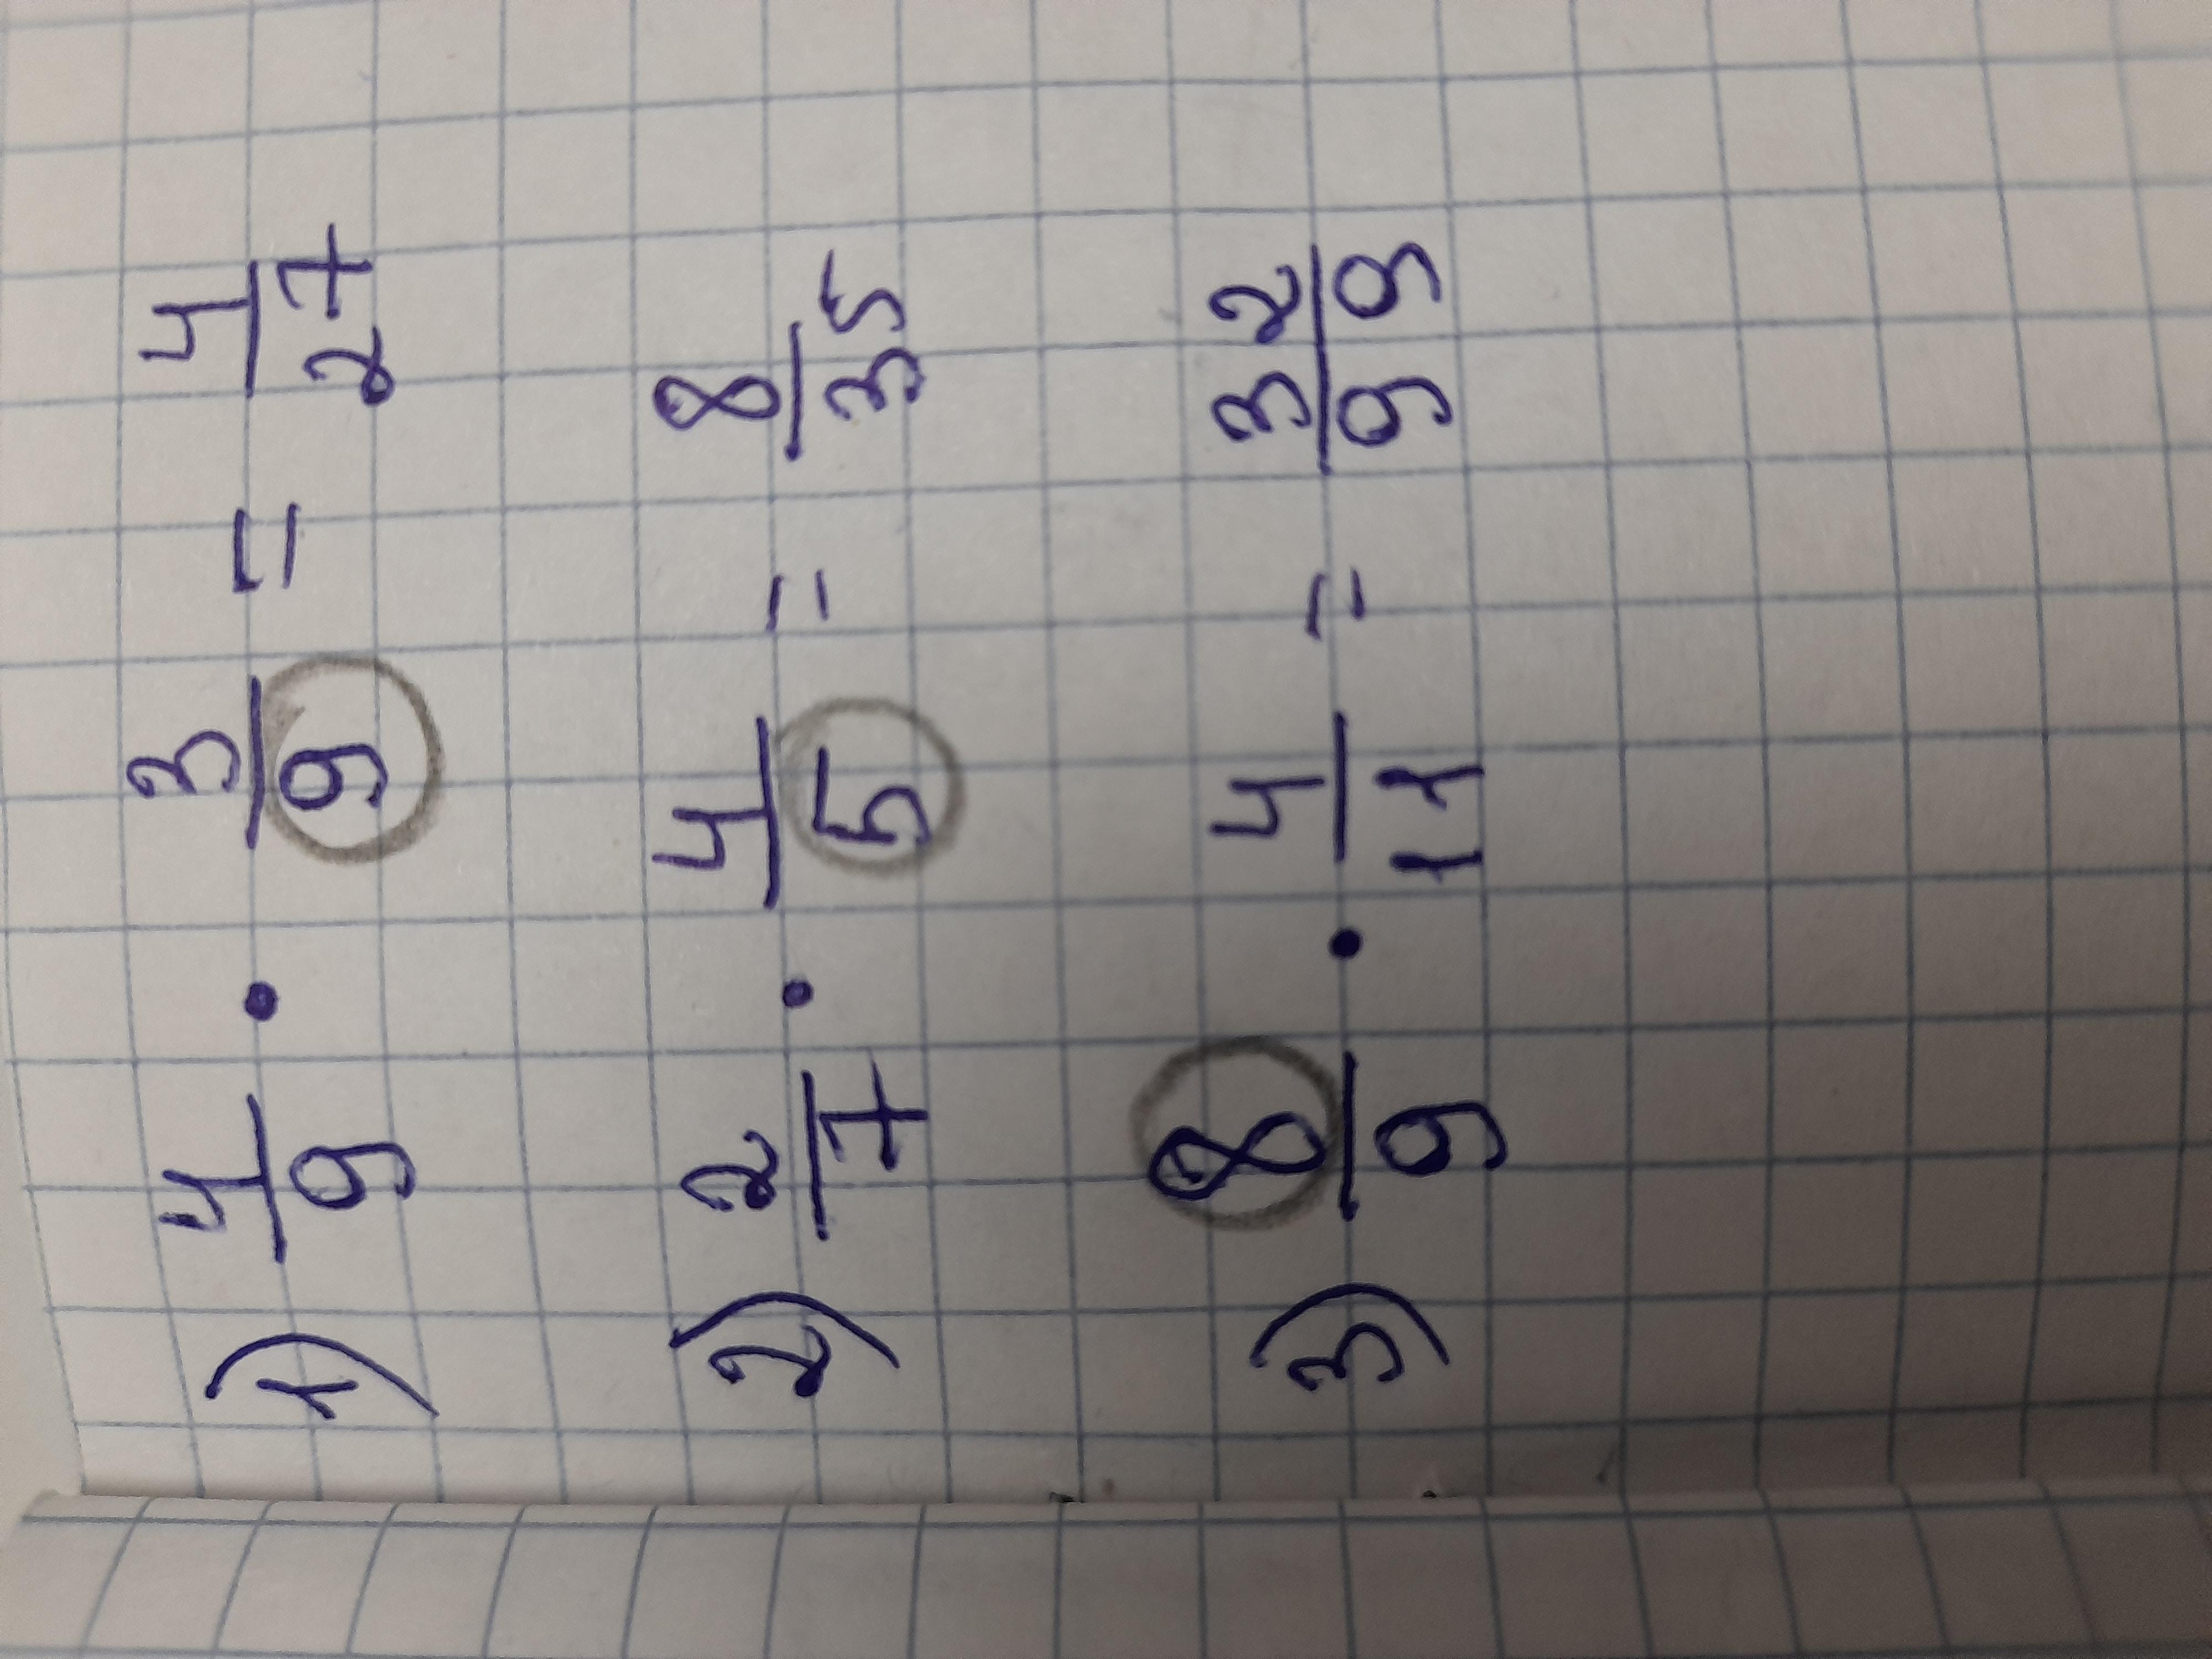 1) 4/9 · 3/9 = 4/27
2) 2/7 · 4/5 = 8/35
3) 8/9 · 4/11 = 32/99